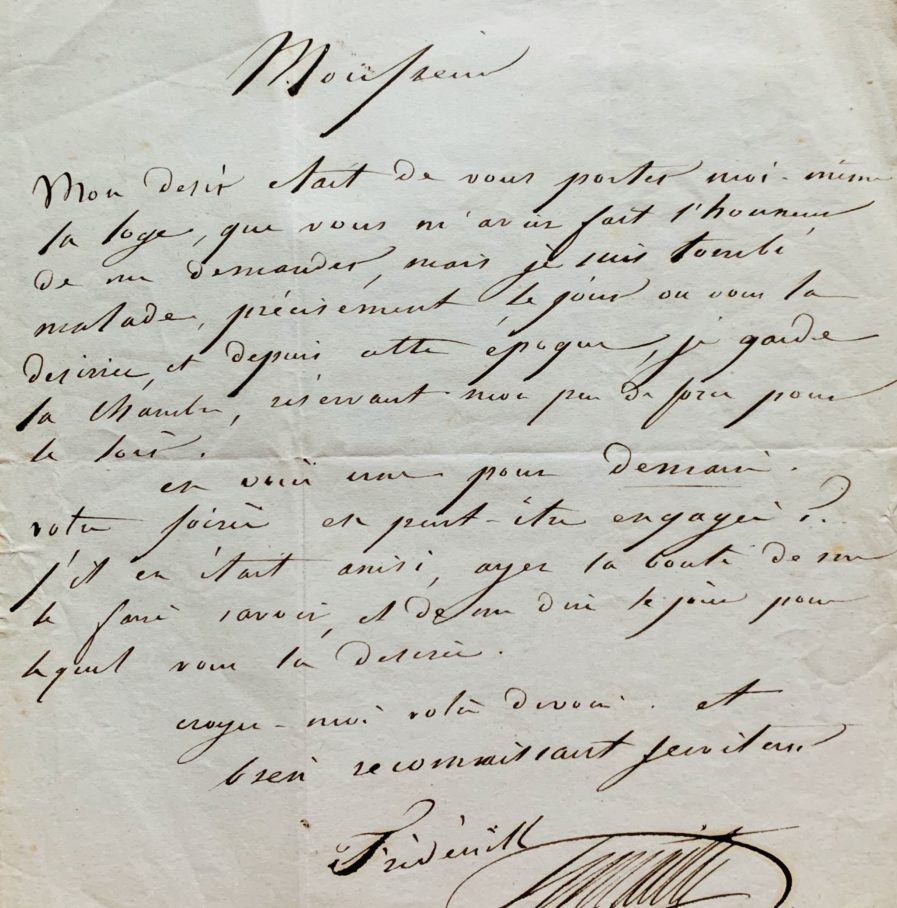 Monsieur
Mon desir etait de vous porter moi-même
la loge, que vous m'aviez fait l'honneur
de me demander, mais je suis tombé
malade, précisément le jour ou vous la
desiriez, et depuis cette époque, je garde
la chambre, réservant mon peu de force pour
le soir.
en voici une pour demain.
votre soirée est peut-être engagée ?
s'il en était ainsi, ayez la bonté de me
le faire savoir, et de me dire le jour pour
lequel vous la desirez.
croyez-moi votre devoué. et
bien reconnaissant serviteur
Frédérick